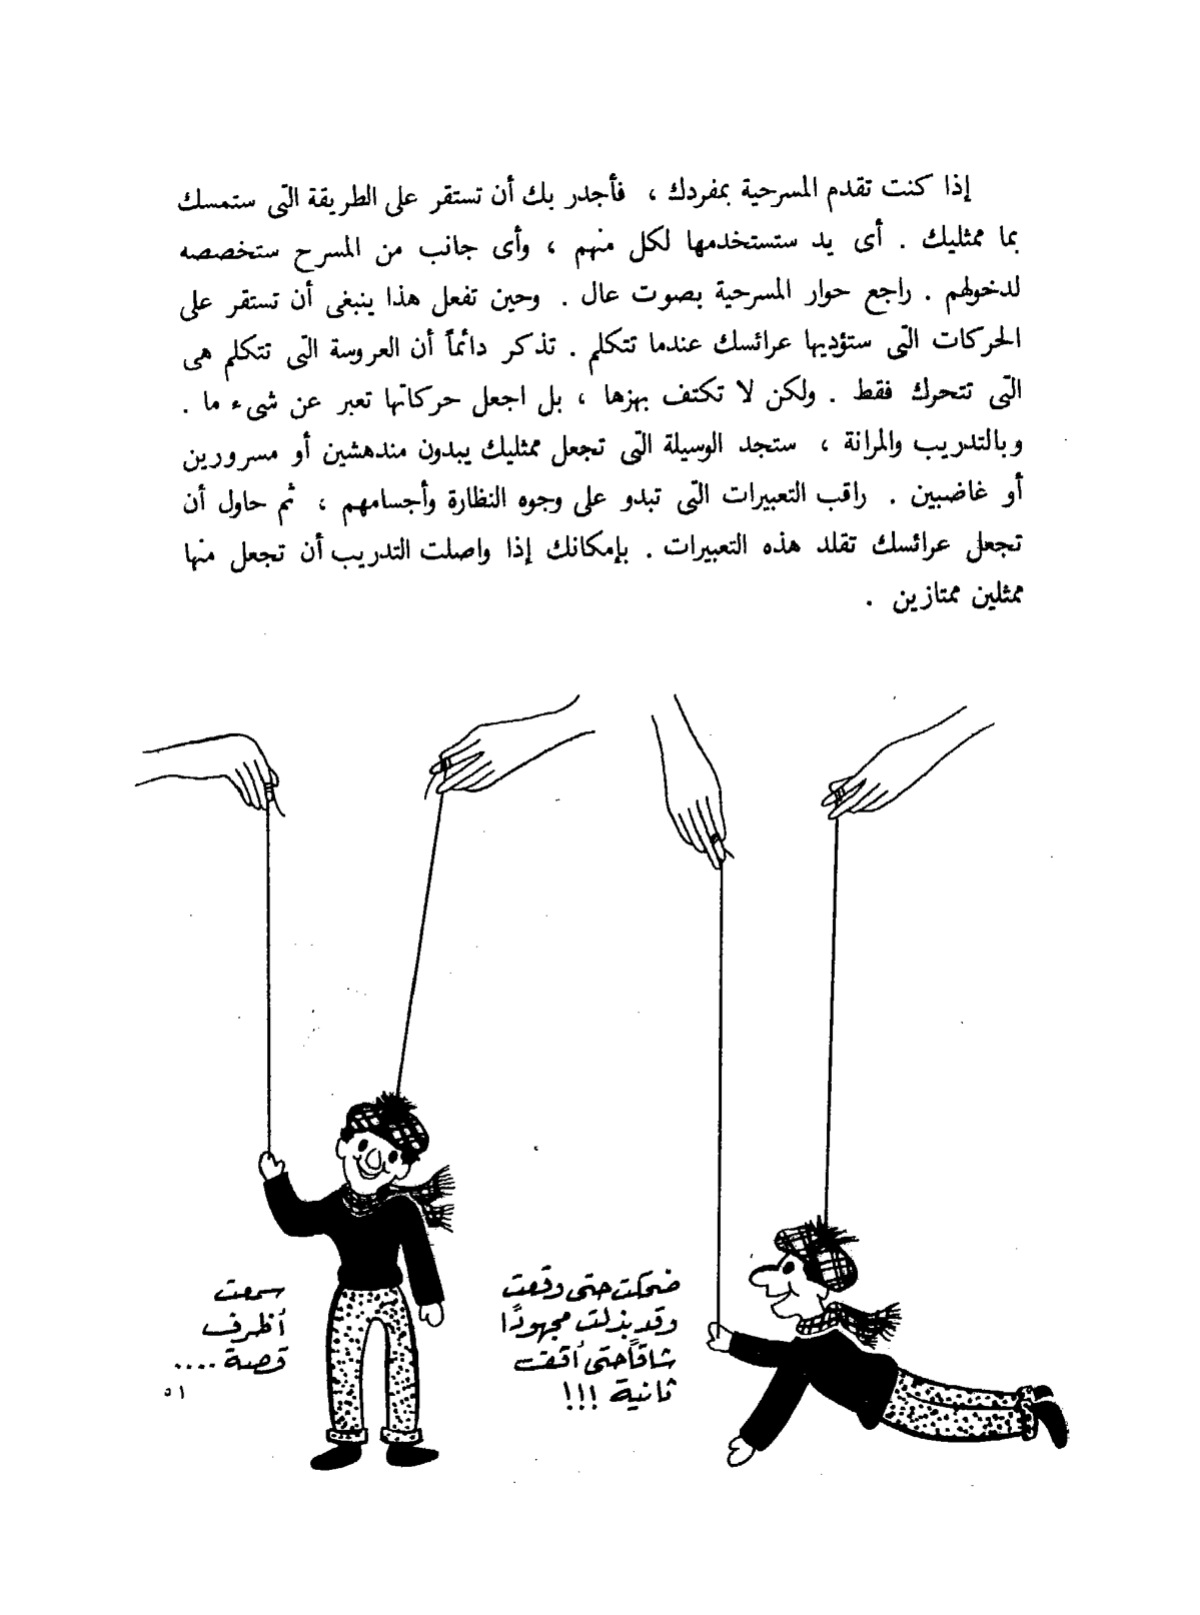 إذا كنت تقدم المسرحية بمفردك ، فأجدر بك أن تستقر على الطريقة التى ستمسك
بما ممثليك . أى يد ستستخدمها لكل منهم ، وأى جانب من المسرح ستخصصه
لدخولهم . راجع حوار المسرحية بصوت عال . وحين تفعل هذا ينبغى أن تستقر على
الحركات التى ستؤديها عرائسك عندما تتكلم . تذكر دائماً أن العروسة التى تتكلم هى
التى تتحرك فقط . ولكن لا تكتف بهزها ، بل اجعل حركاتها تعبر عن شىء ما .
وبالتدريب والمرانة ، ستجد الوسيلة التى تجعل ممثليك يبدون مندهشين أو مسرورين
أو غاضبين . راقب التعبيرات التى تبدو على وجوه النظارة وأجسامهم ، ثم حاول أن
تجعل عرائسك تقلد هذه التعبيرات . بإمكانك إذا واصلت التدريب أن تجعل منها
ممثلين ممتازين .
ضحكت حتى وقعت
وقد بذلت مجهودًا
شاقاً حتى أقف
ثانية !!!
سمعت
أظرف
قصة ....
٥١